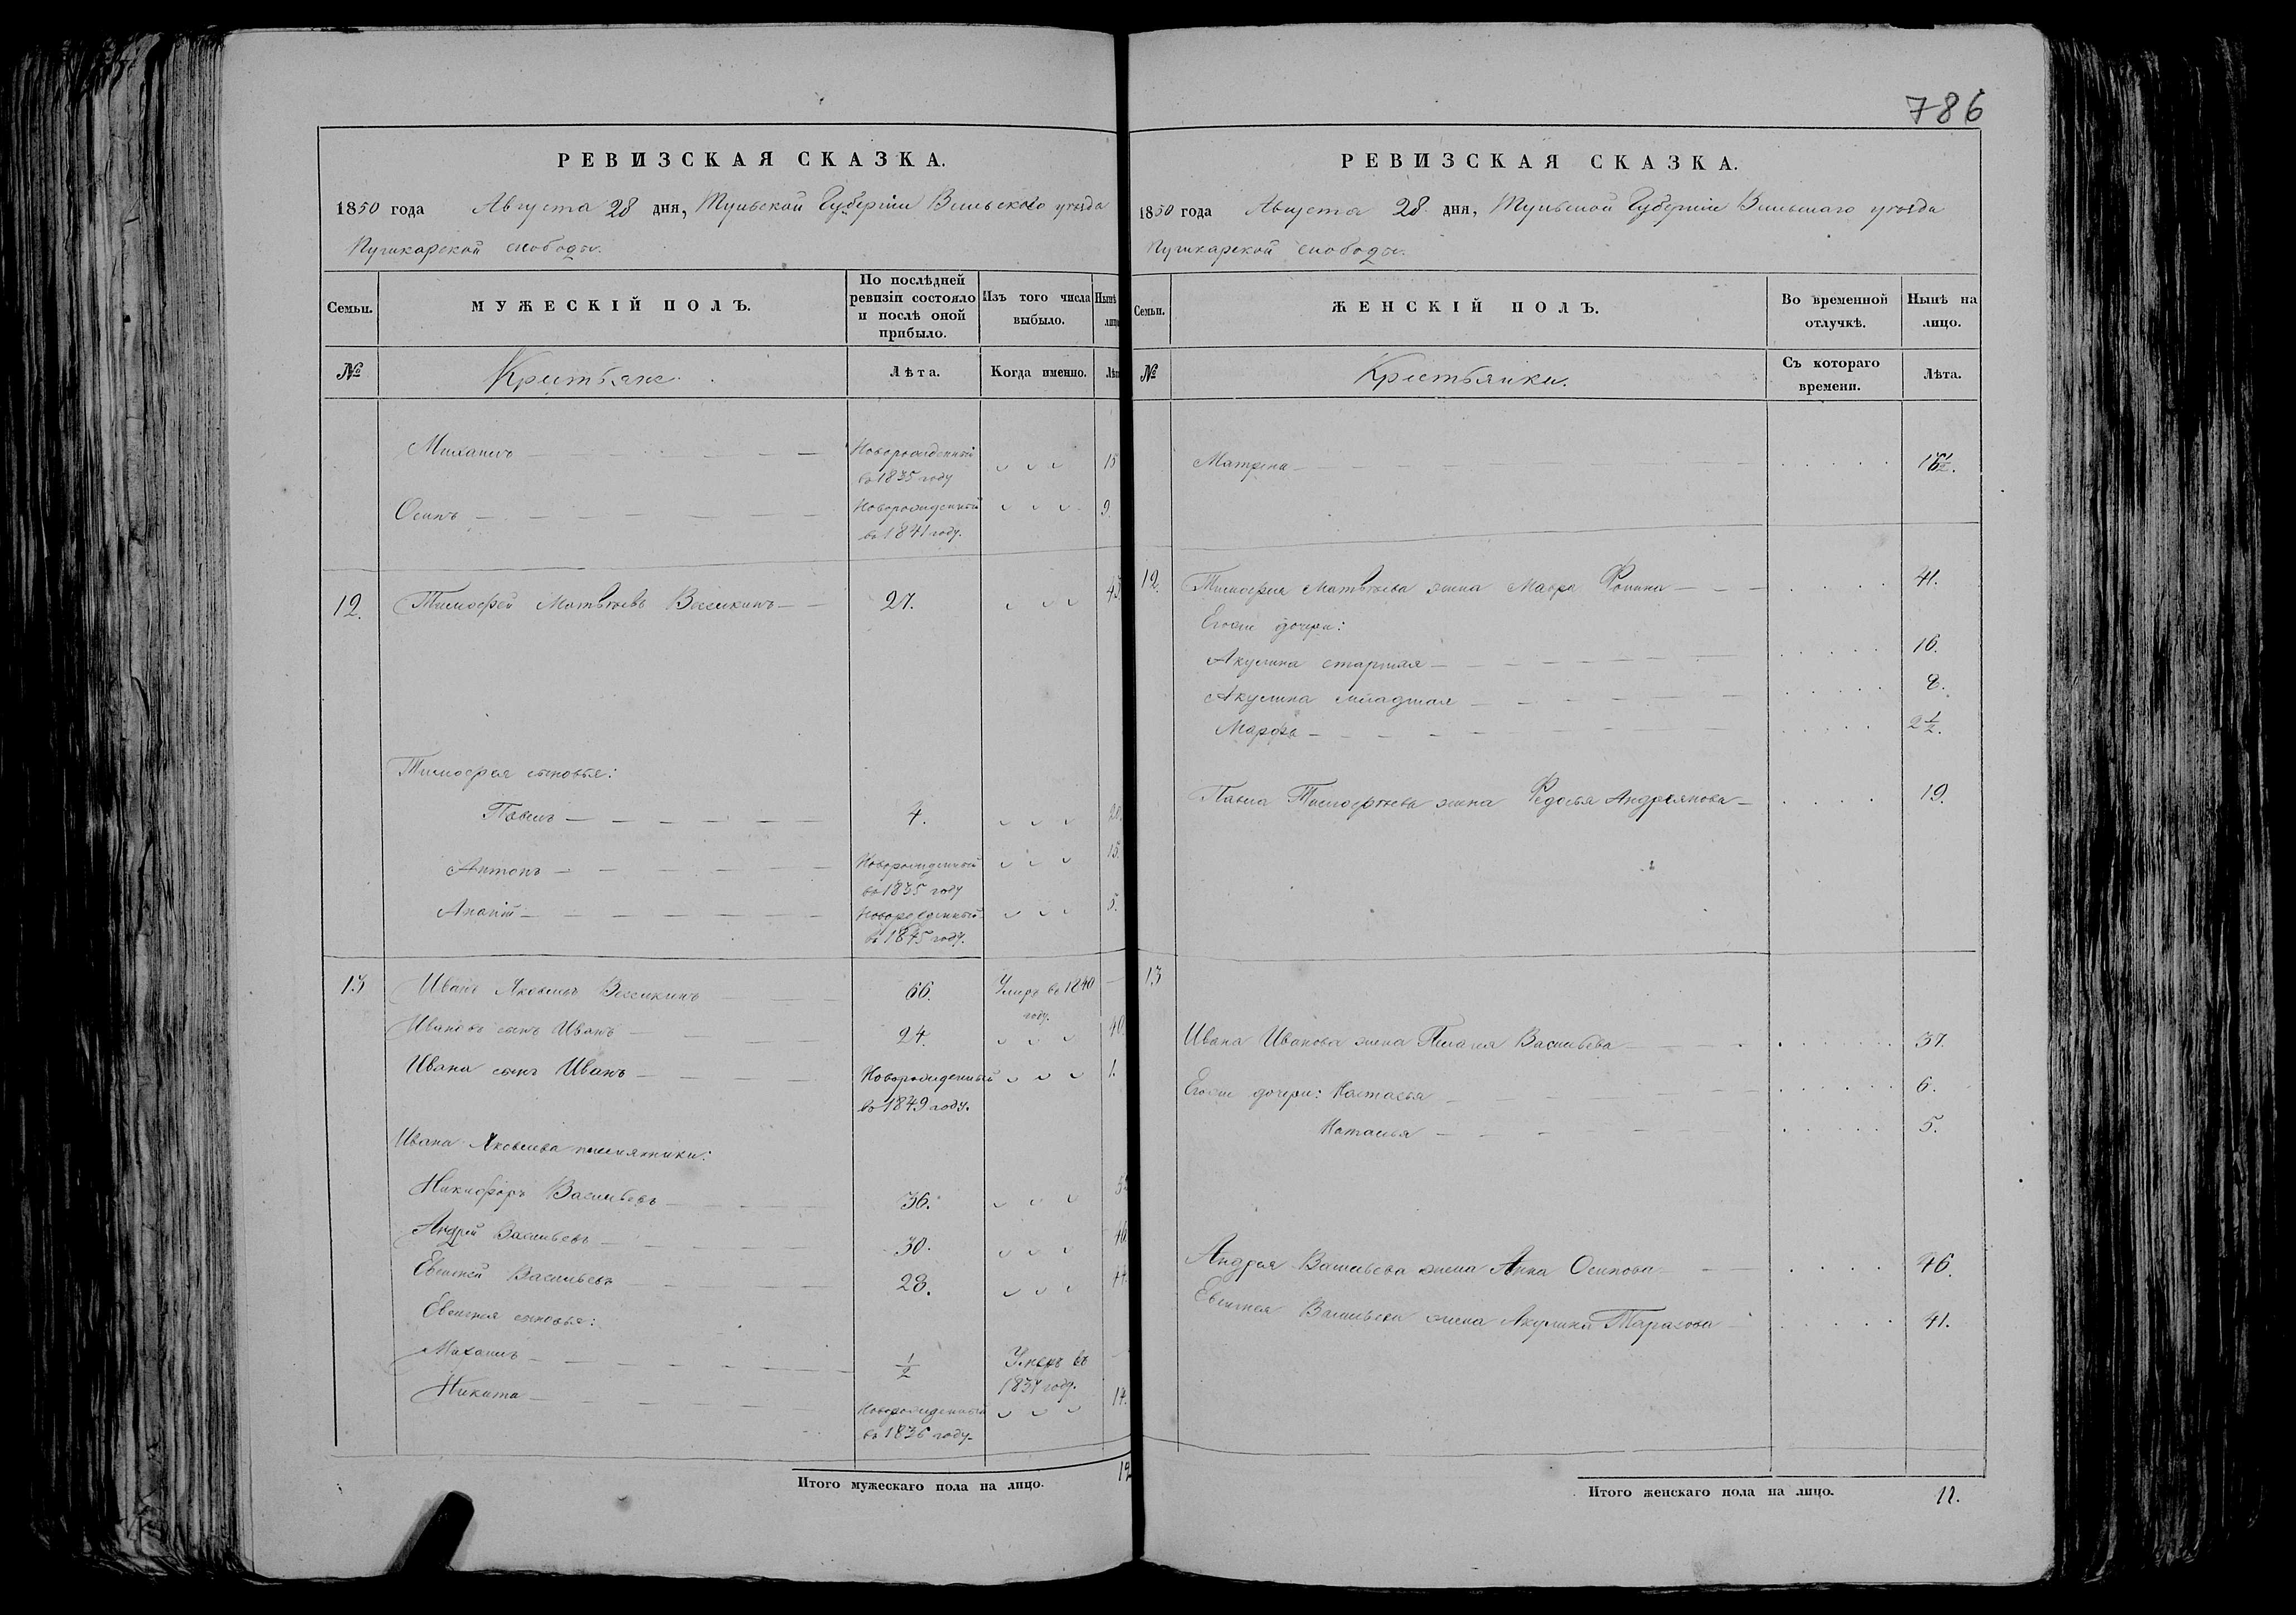 786
РЕВИЗСКАЯ СКАЗКА.
1850 года Августа 28 дня, Тульской Губерніи
Пушкарской слободы.
Семьи.
МУЖЕСКІЙ ПОЛЪ.
По послѣдней
ревизіи состояло
и послѣ оной
прибыло.
Изъ того числа
выбыло.
Нынѣ
лицо
№
Крестьяне.
Лѣта.
Когда именно.
Лѣт
Михаилъ — Новорожденный 15
въ 1835 году
Осипъ — Новорожденный 9.
въ 1841 году.
12. Тимофей Матвѣевъ 27. 43
Тимофея сыновья:
Павелъ — 4. 20.
Антонъ — Новорожденный 15.
въ 1835 году
Новорожденный 5.
въ 1845 году.
13 Иванъ Яковлевъ 66. Умеръ въ 1840 —
году.
Ивановъ сынъ Иванъ — 24. 40
Ивана сынъ Иванъ — Новорожденный 1.
въ 1849 году.
Ивана Яковлева племянники:
Никифоръ Васильевъ — 36. 5
Андрей Васильевъ — 30. 46.
Евсигней Васильевъ — 28. 44.
Евсигнея сыновья:
Михаилъ — 1/2 Умеръ въ —
году.
Никита — Новорожденный 14.
въ 1836 году.
Итого мужескаго пола на лицо. 12
РЕВИЗСКАЯ СКАЗКА.
1850 года Августа 28 дня, Тульской Губерніи
Пушкарской слободы.
Семьи.
ЖЕНСКІЙ ПОЛЪ.
Во временной
отлучкѣ.
Нынѣ на
лицо.
№
Крестьянки.
Съ котораго
времени.
Лѣта.
Матрена —
12. Тимофея Матвѣева жена Мавра Фокина — 41.
Егоже дочери:
Акулина старшая — 16.
Акулина младшая — 8.
Марфа — 2 1/2.
Павла Тимофѣева жена Федосья Андреянова — 19.
13
Ивана Иванова жена Пелагея Васильева — 37.
Егоже дочери: Настасья — 6.
Наталья — 5.
Андрея Васильева жена Анна Осипова — 46.
Евсигнея Васильева жена Акулина Тарасова — 41.
Итого женскаго пола на лицо. 11.